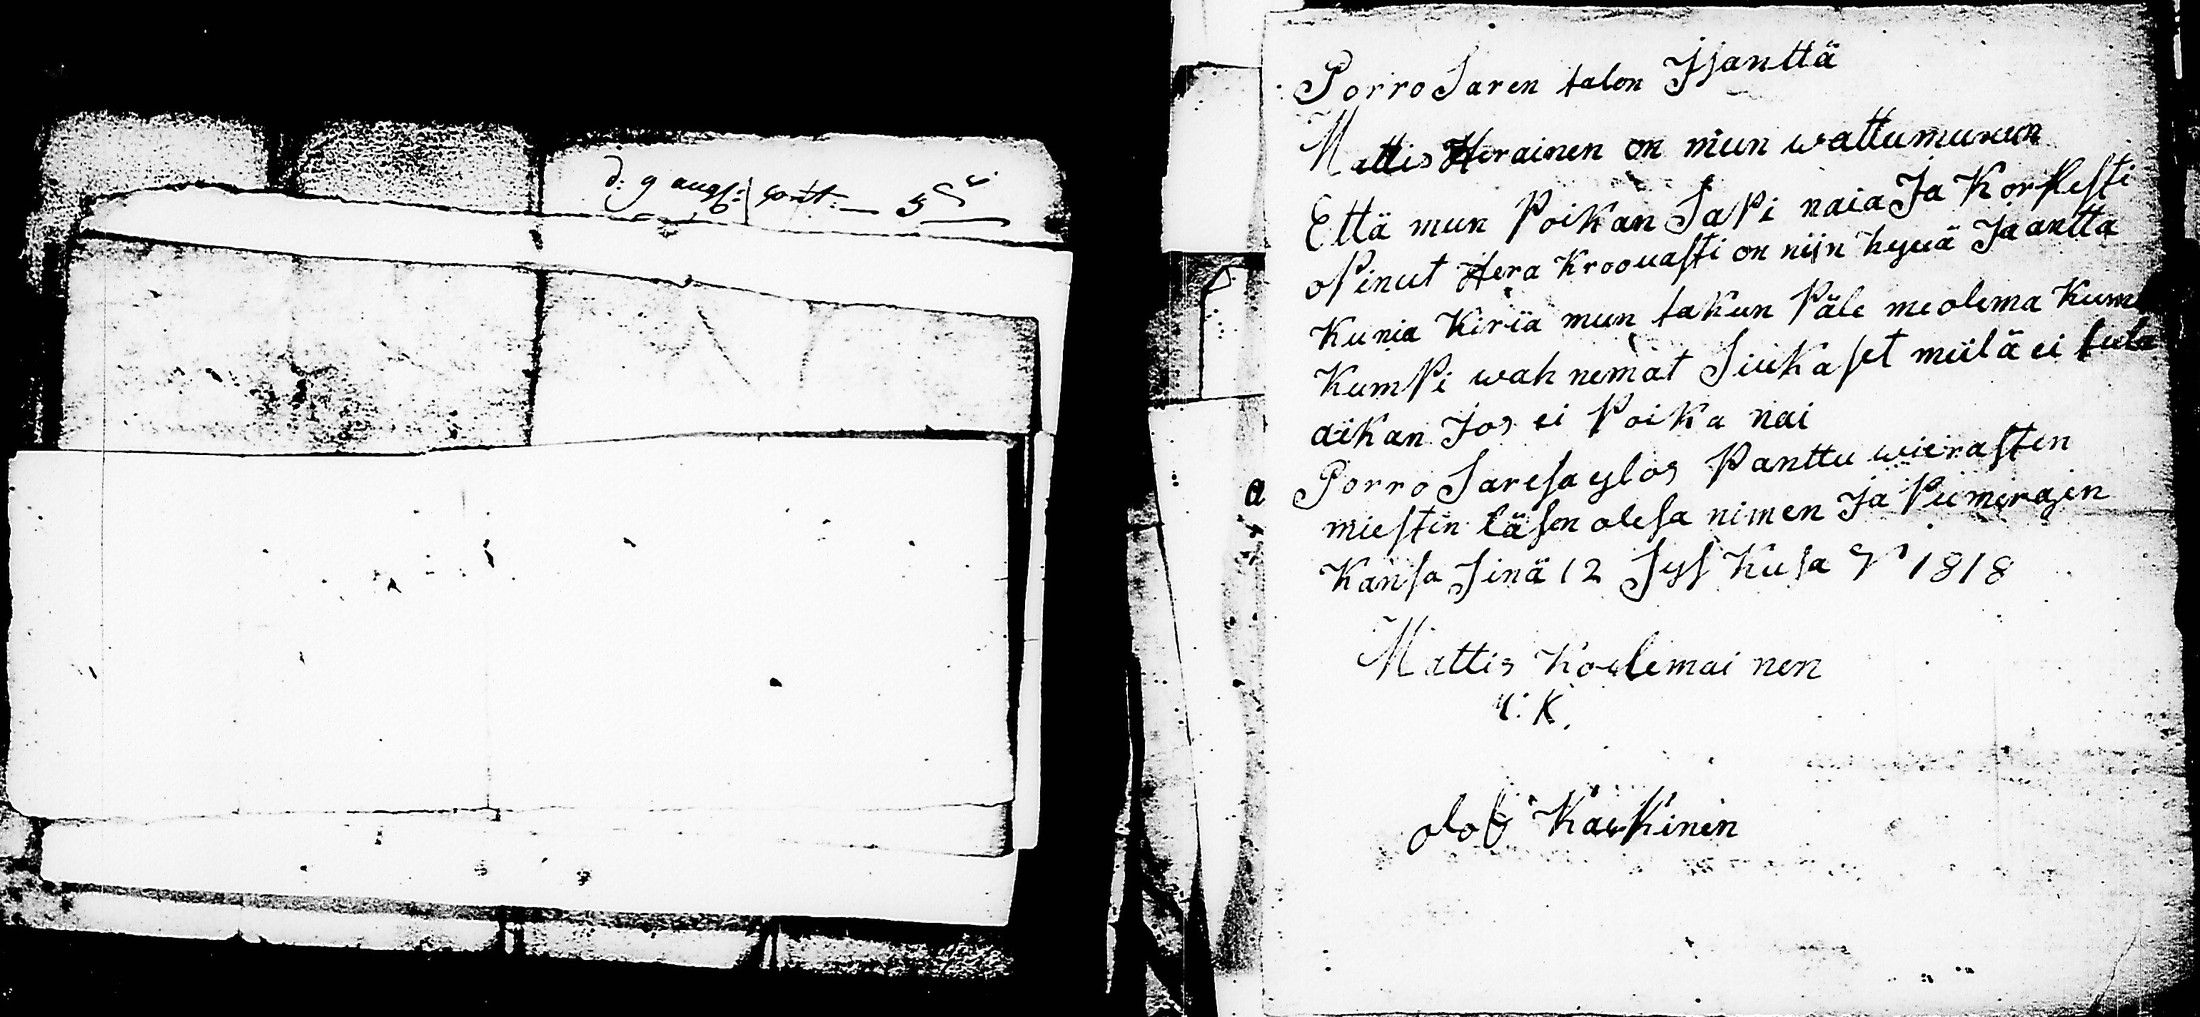 d: 9 aug:
Porro Saren talon Isanttä
Mattis Herainen on mun wattumunun
Että mun Poikan SaPi naia Ja Korkesti
oPinut Hera Kroouasti on niin hyuä Ja antta
Kunia Kiria mun takun Päle me olema Kum
KumPi wah nemat Siukaset meilä ei tule
aikan Jos ei Poika nai
a Porro Saresa ylos Panttu wierasten
miestin läsen olesa nimen Ja Pumeragen
Kansa Sinä 12 Sys Kusa 1818
Mattis Kolemai nen
olof Kaikinen